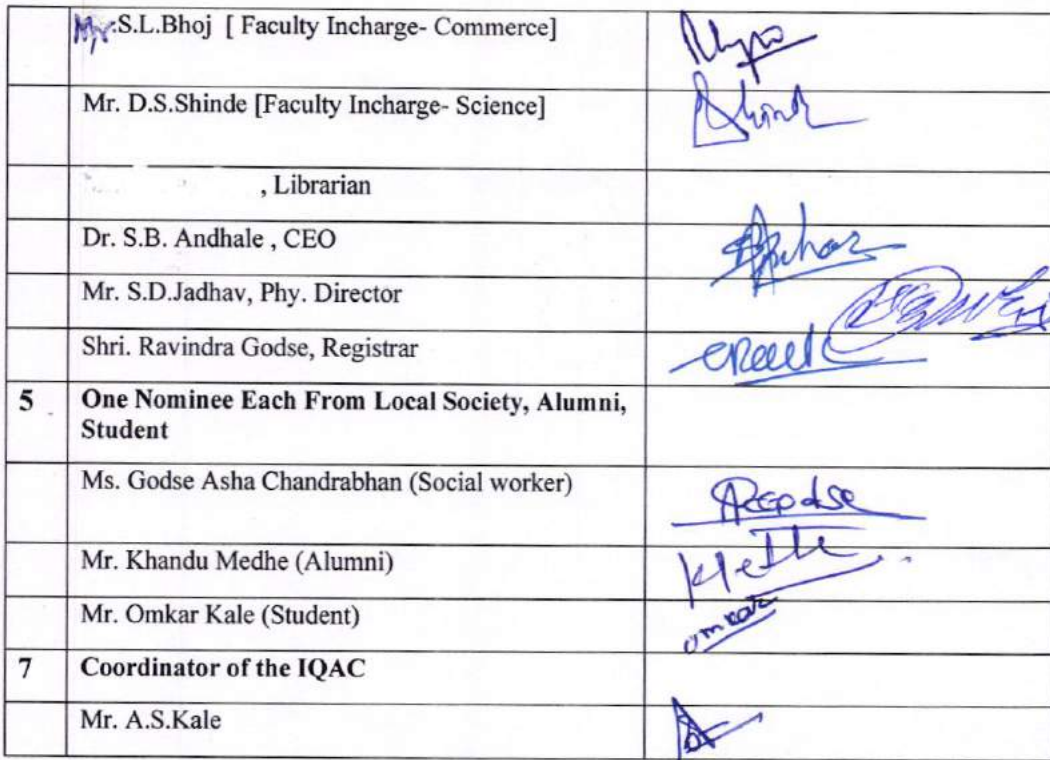 Mr.S.L.Bhoj [ Faculty Incharge- Commerce]
Mr. D.S.Shinde [Faculty Incharge- Science]
, Librarian
Dr. S.B. Andhale , CEO
Mr. S.D.Jadhav, Phy. Director
Shri. Ravindra Godse, Registrar
5 One Nominee Each From Local Society, Alumni,
Student
Ms. Godse Asha Chandrabhan (Social worker)
Mr. Khandu Medhe (Alumni)
Mr. Omkar Kale (Student)
omkar
7 Coordinator of the IQAC
Mr. A.S.Kale